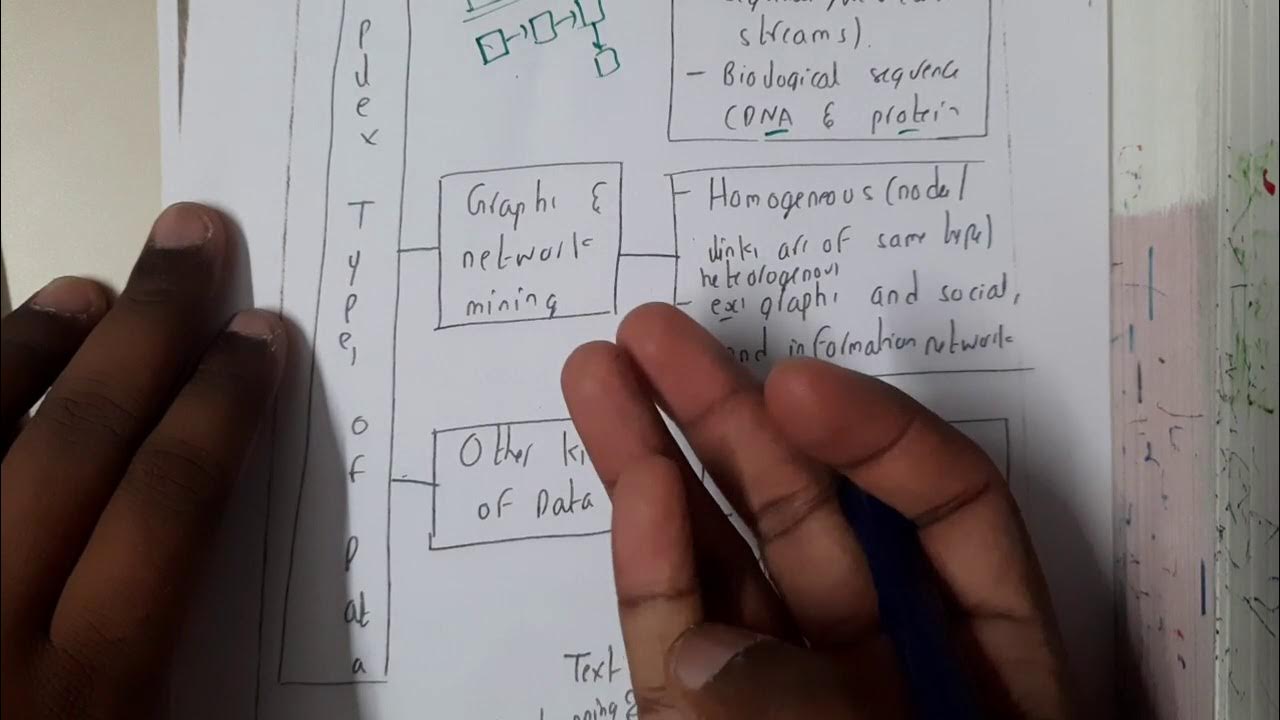 streams).
- Biological sequence
(DNA & protein
Graphs &
network
mining
- Homogeneous (node/
links are of same type)
heterogenous
- ex: graphs and social,
and information network
Other
of Data
p
l
e
x
T
y
p
e
s
o
f
D
at
a
Text